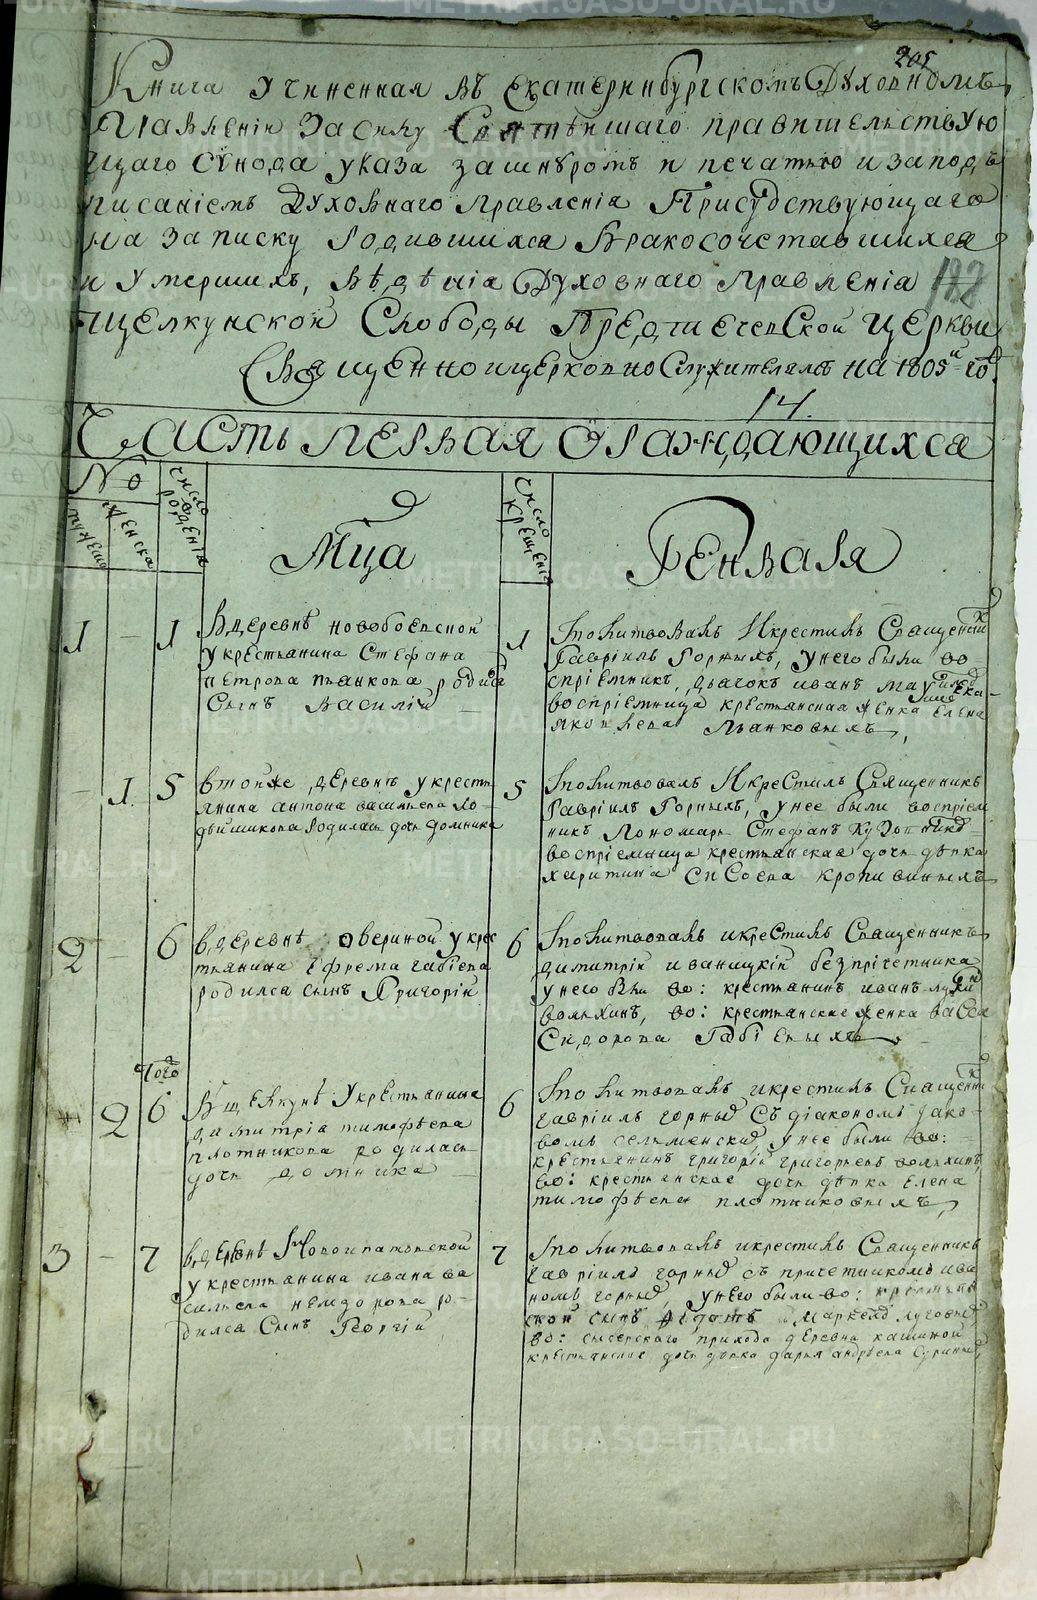 205
Книга Учиненная въ Екатеринбургскомъ Духовномъ
Правленіи За силу Святѣйшаго правительствую
щаго Сѵнода указа зашнуромъ и печатью и запод
писаніемъ Духовнаго Правленія Присудствующаго
на записку Родившихся Бракосочетавшихся
и Умершихъ, вѣденія Духовнаго Правленія
Щелкунской Слободы Предтечевской церкви
Священноицерковнослужителямъ на 1805й годъ
14.
Часть первая О раждающихся
№
мужеска
женска
число рожденія
Мца
число крещенія
Генваря
1 — 1
Вдеревнѣ новобоевской
у крестьянина Стефана
петрова пьянкова родился
Сынъ Василій
1
Молитвовалъ Икрестилъ Священникъ
Гавріилъ Горныхъ, унего были во
спріемникъ, дьячокъ иванъ
воспріемница крестьянская женка Елена
яковлева Пьянковыхъ,
— 1 5
втойже деревнѣ укресть
янина антона васильева
родилась дочь домника
5
Молитвовалъ Икрестилъ Священникъ
Гавріилъ Горныхъ, унее были воспріем
никъ Пономарь Стефанъ
воспріемница крестьянская дочь дѣвка
харитина Сысоева кропивиныхъ
2 — 6
вдеревнѣ Авериной укрес
тьянина Ефрема
родился сынъ Григорій
6
Молитвовалъ икрестилъ Священникъ
димитрій иваницкій безпричетника
унего были во: крестьянинъ иванъ
волыхинъ, во: крестьянская женка васса
Сидорова
Того
2 6
Вщелкунѣ Укрестьянина
димитрія тимофѣева
плотникова родилась
дочь домника
6
Молитвовалъ икрестилъ Священникъ
гавріилъ горныхъ Съ діакономъ яко-
вомъ селменскихъ, унее были во:
крестьянинъ григорій григорьевъ волыхинъ,
во: крестьянская дочь дѣвка Елена
тимофѣева плотниковыхъ,
3 — 7
вдеревнѣ Новоипатовской
укрестьянина ивана ва
сильева немдорова ро-
дился Сынъ Георгій
7
Молитвовалъ икрестилъ Священникъ
гавріилъ горныхъ съ причетникомъ ива
номъ горныхъ унего были во: крестьян
ской сынъ маркелъ луговыхъ
во: сысерскаго прихода деревни кашиной
крестьянская дочь дѣвка дарья андрѣева